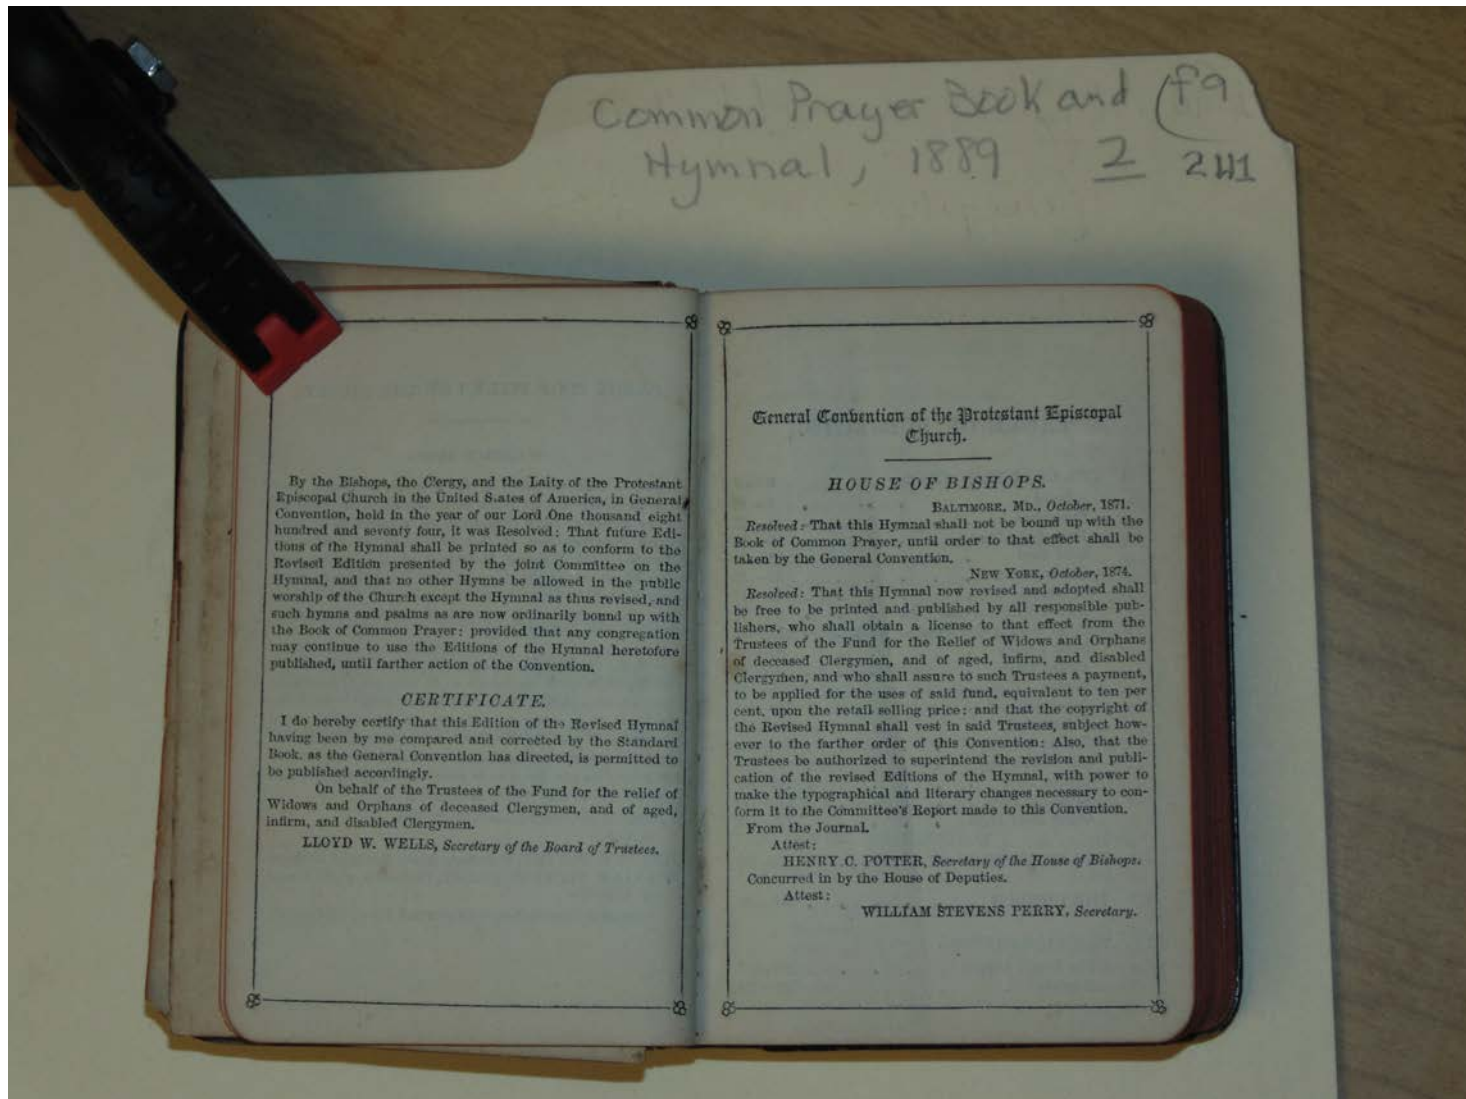 Common Prayer Book and (f9
Hymnal, 1889 2 241
By the Bishops, the Clergy, and the Laity of the Protestant
Episcopal Church in the United States of America, in General
Convention, held in the year of our Lord One thousand eight
hundred and seventy four, it was Resolved: That future Edi-
tions of the Hymnal shall be printed so as to conform to the
Revised Edition presented by the joint Committee on the
Hymnal, and that no other Hymns be allowed in the public
worship of the Church except the Hymnal as thus revised, and
such hymns and psalms as are now ordinarily bound up with
the Book of Common Prayer: provided that any congregation
may continue to use the Editions of the Hymnal heretofore
published, until farther action of the Convention.
CERTIFICATE.
I do hereby certify that this Edition of the Revised Hymnal
having been by me compared and corrected by the Standard
Book, as the General Convention has directed, is permitted to
be published accordingly.
On behalf of the Trustees of the Fund for the relief of
Widows and Orphans of deceased Clergymen, and of aged,
infirm, and disabled Clergymen.
LLOYD W. WELLS, Secretary of the Board of Trustees.
General Convention of the Protestant Episcopal
Church.
HOUSE OF BISHOPS.
BALTIMORE, MD., October, 1871.
Resolved: That this Hymnal shall not be bound up with the
Book of Common Prayer, until order to that effect shall be
taken by the General Convention.
NEW YORK, October, 1874.
Resolved: That this Hymnal now revised and adopted shall
be free to be printed and published by all responsible pub-
lishers, who shall obtain a license to that effect from the
Trustees of the Fund for the Relief of Widows and Orphans
of deceased Clergymen, and of aged, infirm, and disabled
Clergymen, and who shall assure to such Trustees a payment,
to be applied for the uses of said fund, equivalent to ten per
cent. upon the retail selling price: and that the copyright of
the Revised Hymnal shall vest in said Trustees, subject how-
ever to the farther order of this Convention: Also, that the
Trustees be authorized to superintend the revision and publi-
cation of the revised Editions of the Hymnal, with power to
make the typographical and literary changes necessary to con-
form it to the Committee's Report made to this Convention.
From the Journal.
Attest:
HENRY C. POTTER, Secretary of the House of Bishops.
Concurred in by the House of Deputies.
Attest:
WILLIAM STEVENS PERRY, Secretary.